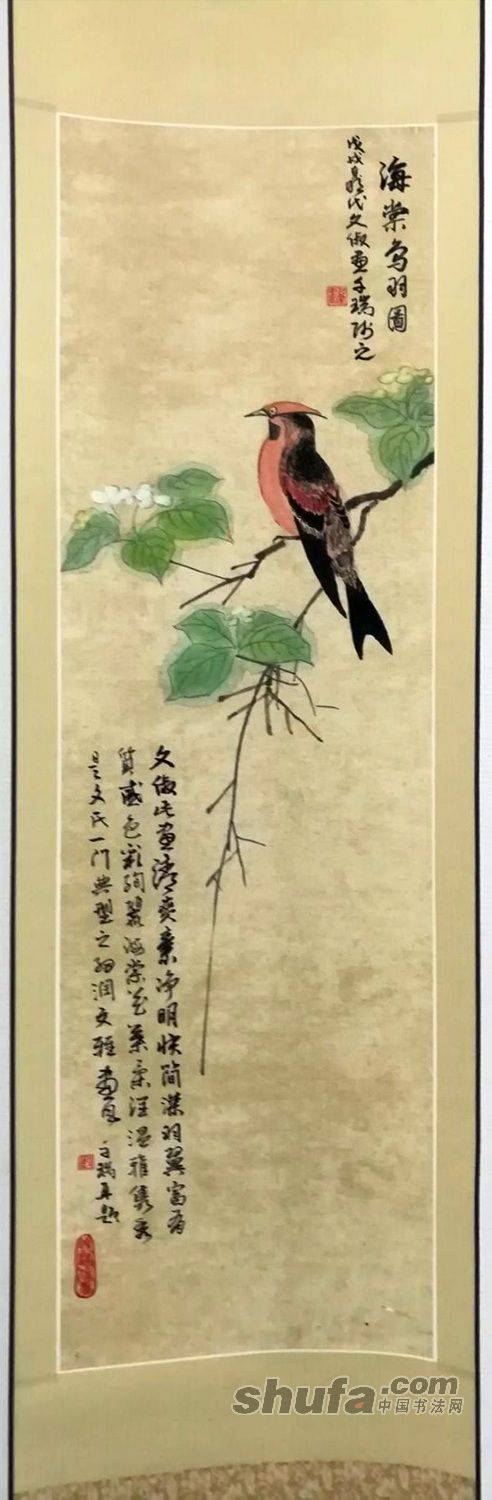 海棠鸟羽圖
戊戌 明代文俶画 子瑞临之
文俶此画清爽素净明快简洁羽翼富有
質感色彩绚麗海棠花葉柔 温雅隽秀
是文氏一门典型之细润文雅畫風
子瑞再题
shufa.com
中国书法网